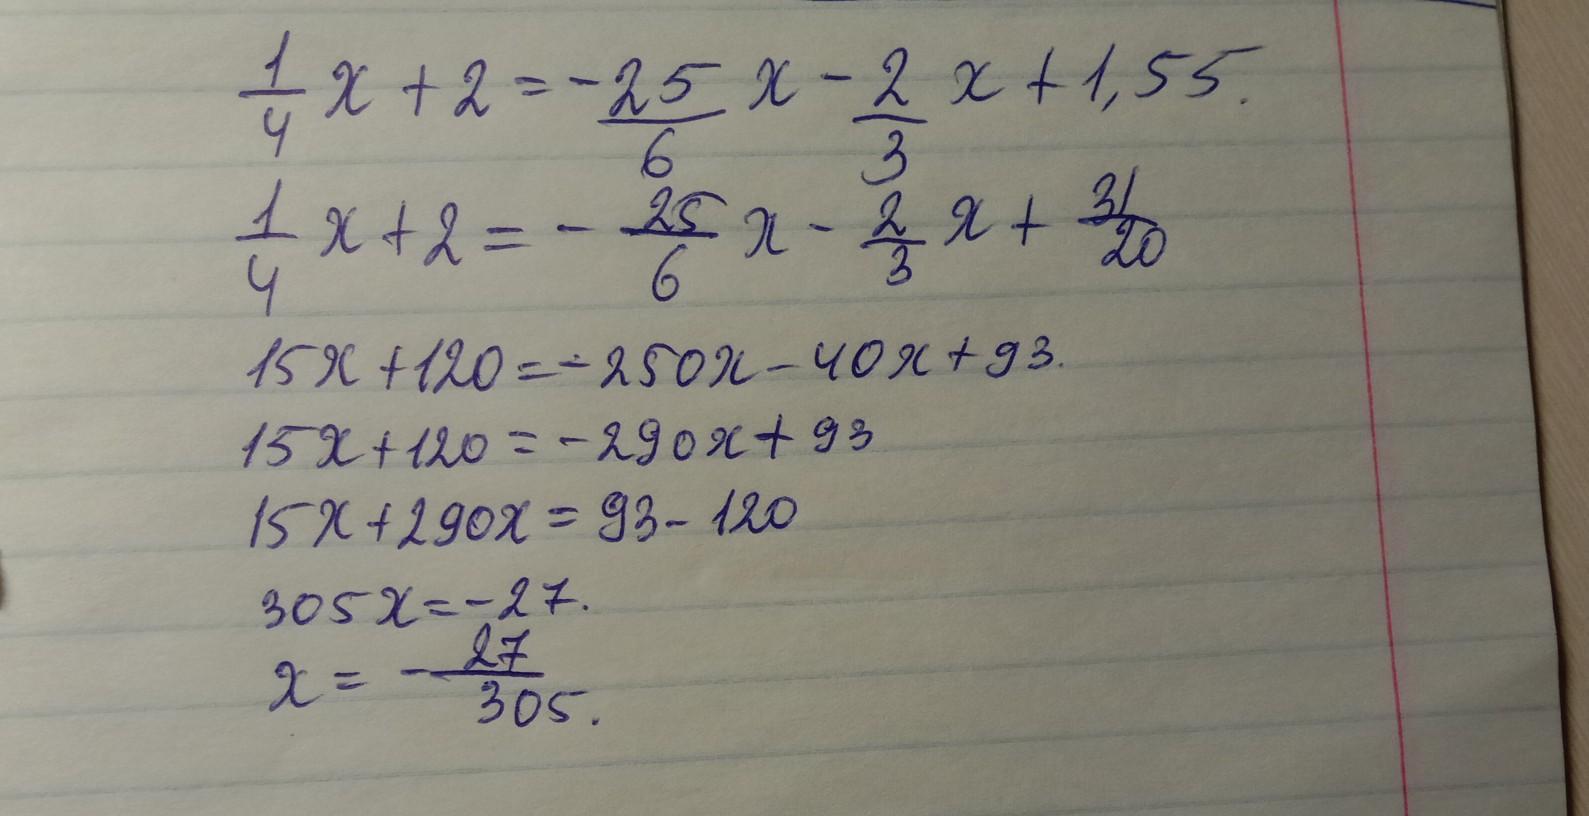 1/4 x + 2 = - 25/6 x - 2/3 x + 1,55.
1/4 x + 2 = - 25/6 x - 2/3 x + 31/20
15x + 120 = - 250x - 40x + 93.
15x + 120 = - 290x + 93
15x + 290x = 93 - 120
305x = - 27.
x = - 27/305.